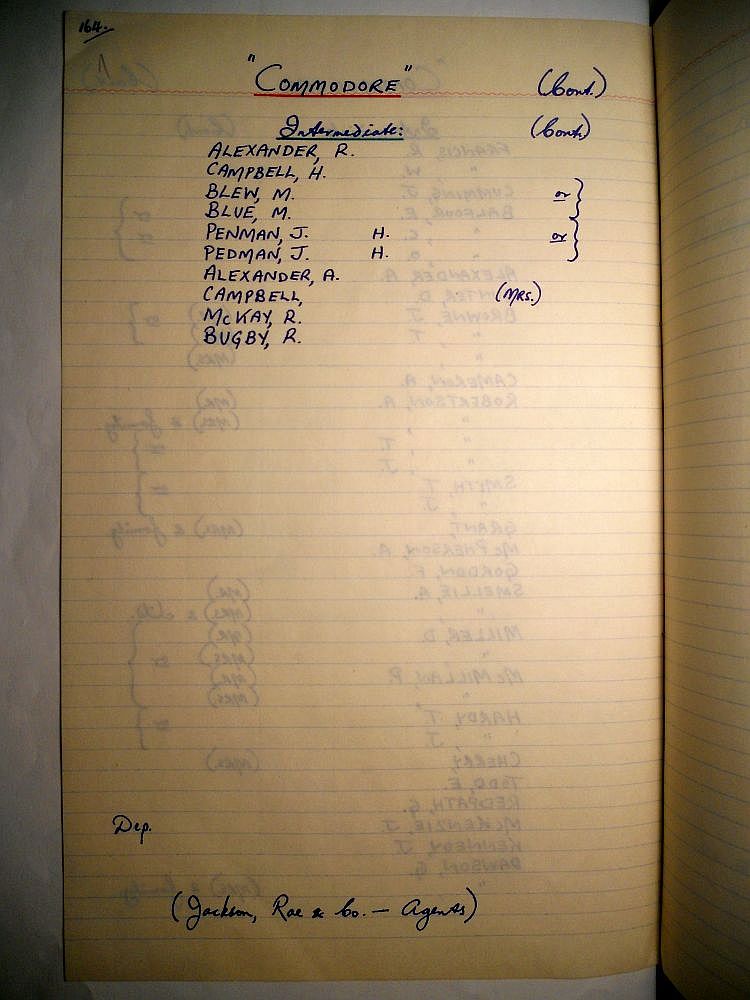 164.
"COMMODORE" (Cont.)
Intermediate: (Cont.)
ALEXANDER, R.
CAMPBELL, H.
BLEW, M. or }
BLUE, M.
PENMAN, J. H. or }
PEDMAN, J. H.
ALEXANDER, A.
CAMPBELL, (MRS.)
McKAY, R.
BUGBY, R.
Dep.
(Jackson, Rae & Co. — Agents)